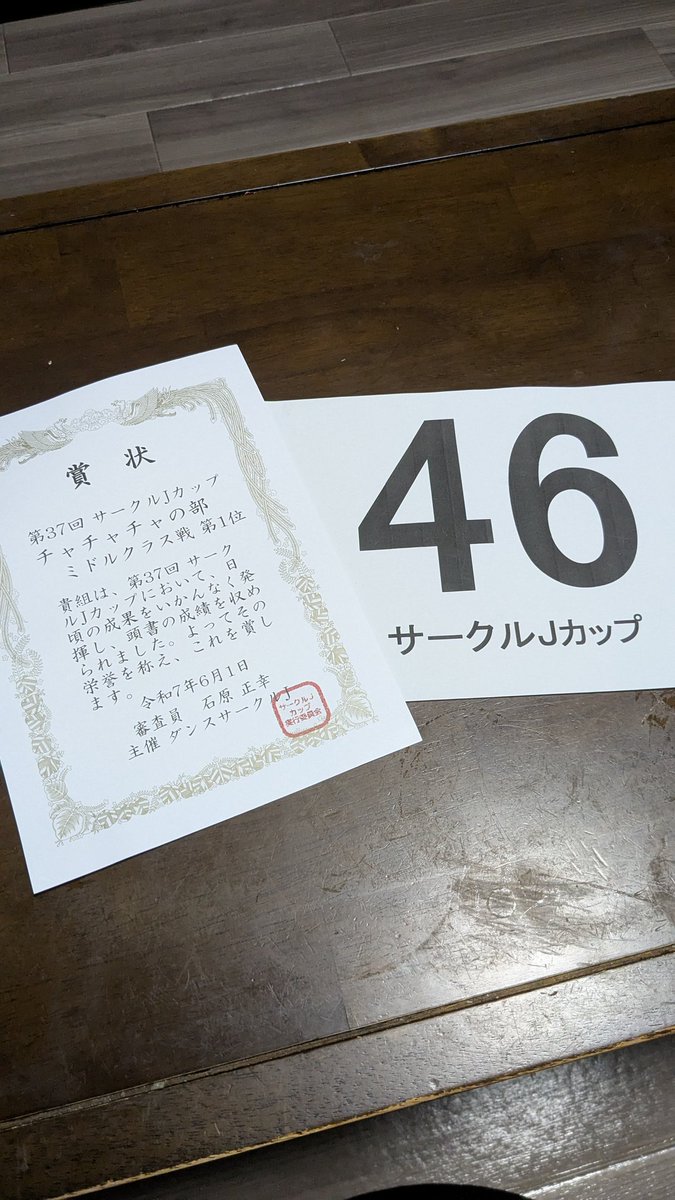 賞状
第37回 サークルJカップ
チャチャチャの部
ミドルクラス戦 第1位
貴組は、第37回 サーク
ルJカップにおいて、日
頃の成果をいかんなく発
揮し、頭書の成績を収め
られました。よってその
栄誉を称え、これを賞し
ます。
令和7年6月1日
審査員 石原 正幸
主催 ダンスサークルJ
サークルJ
カップ
実行委員会
46
サークルJカップ